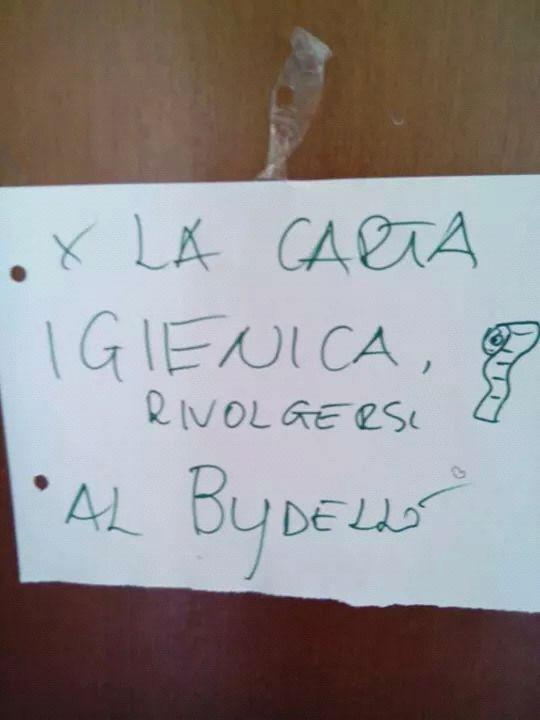 x LA CARTA
IGIENICA,
RIVOLGERSI
AL BYDELLO